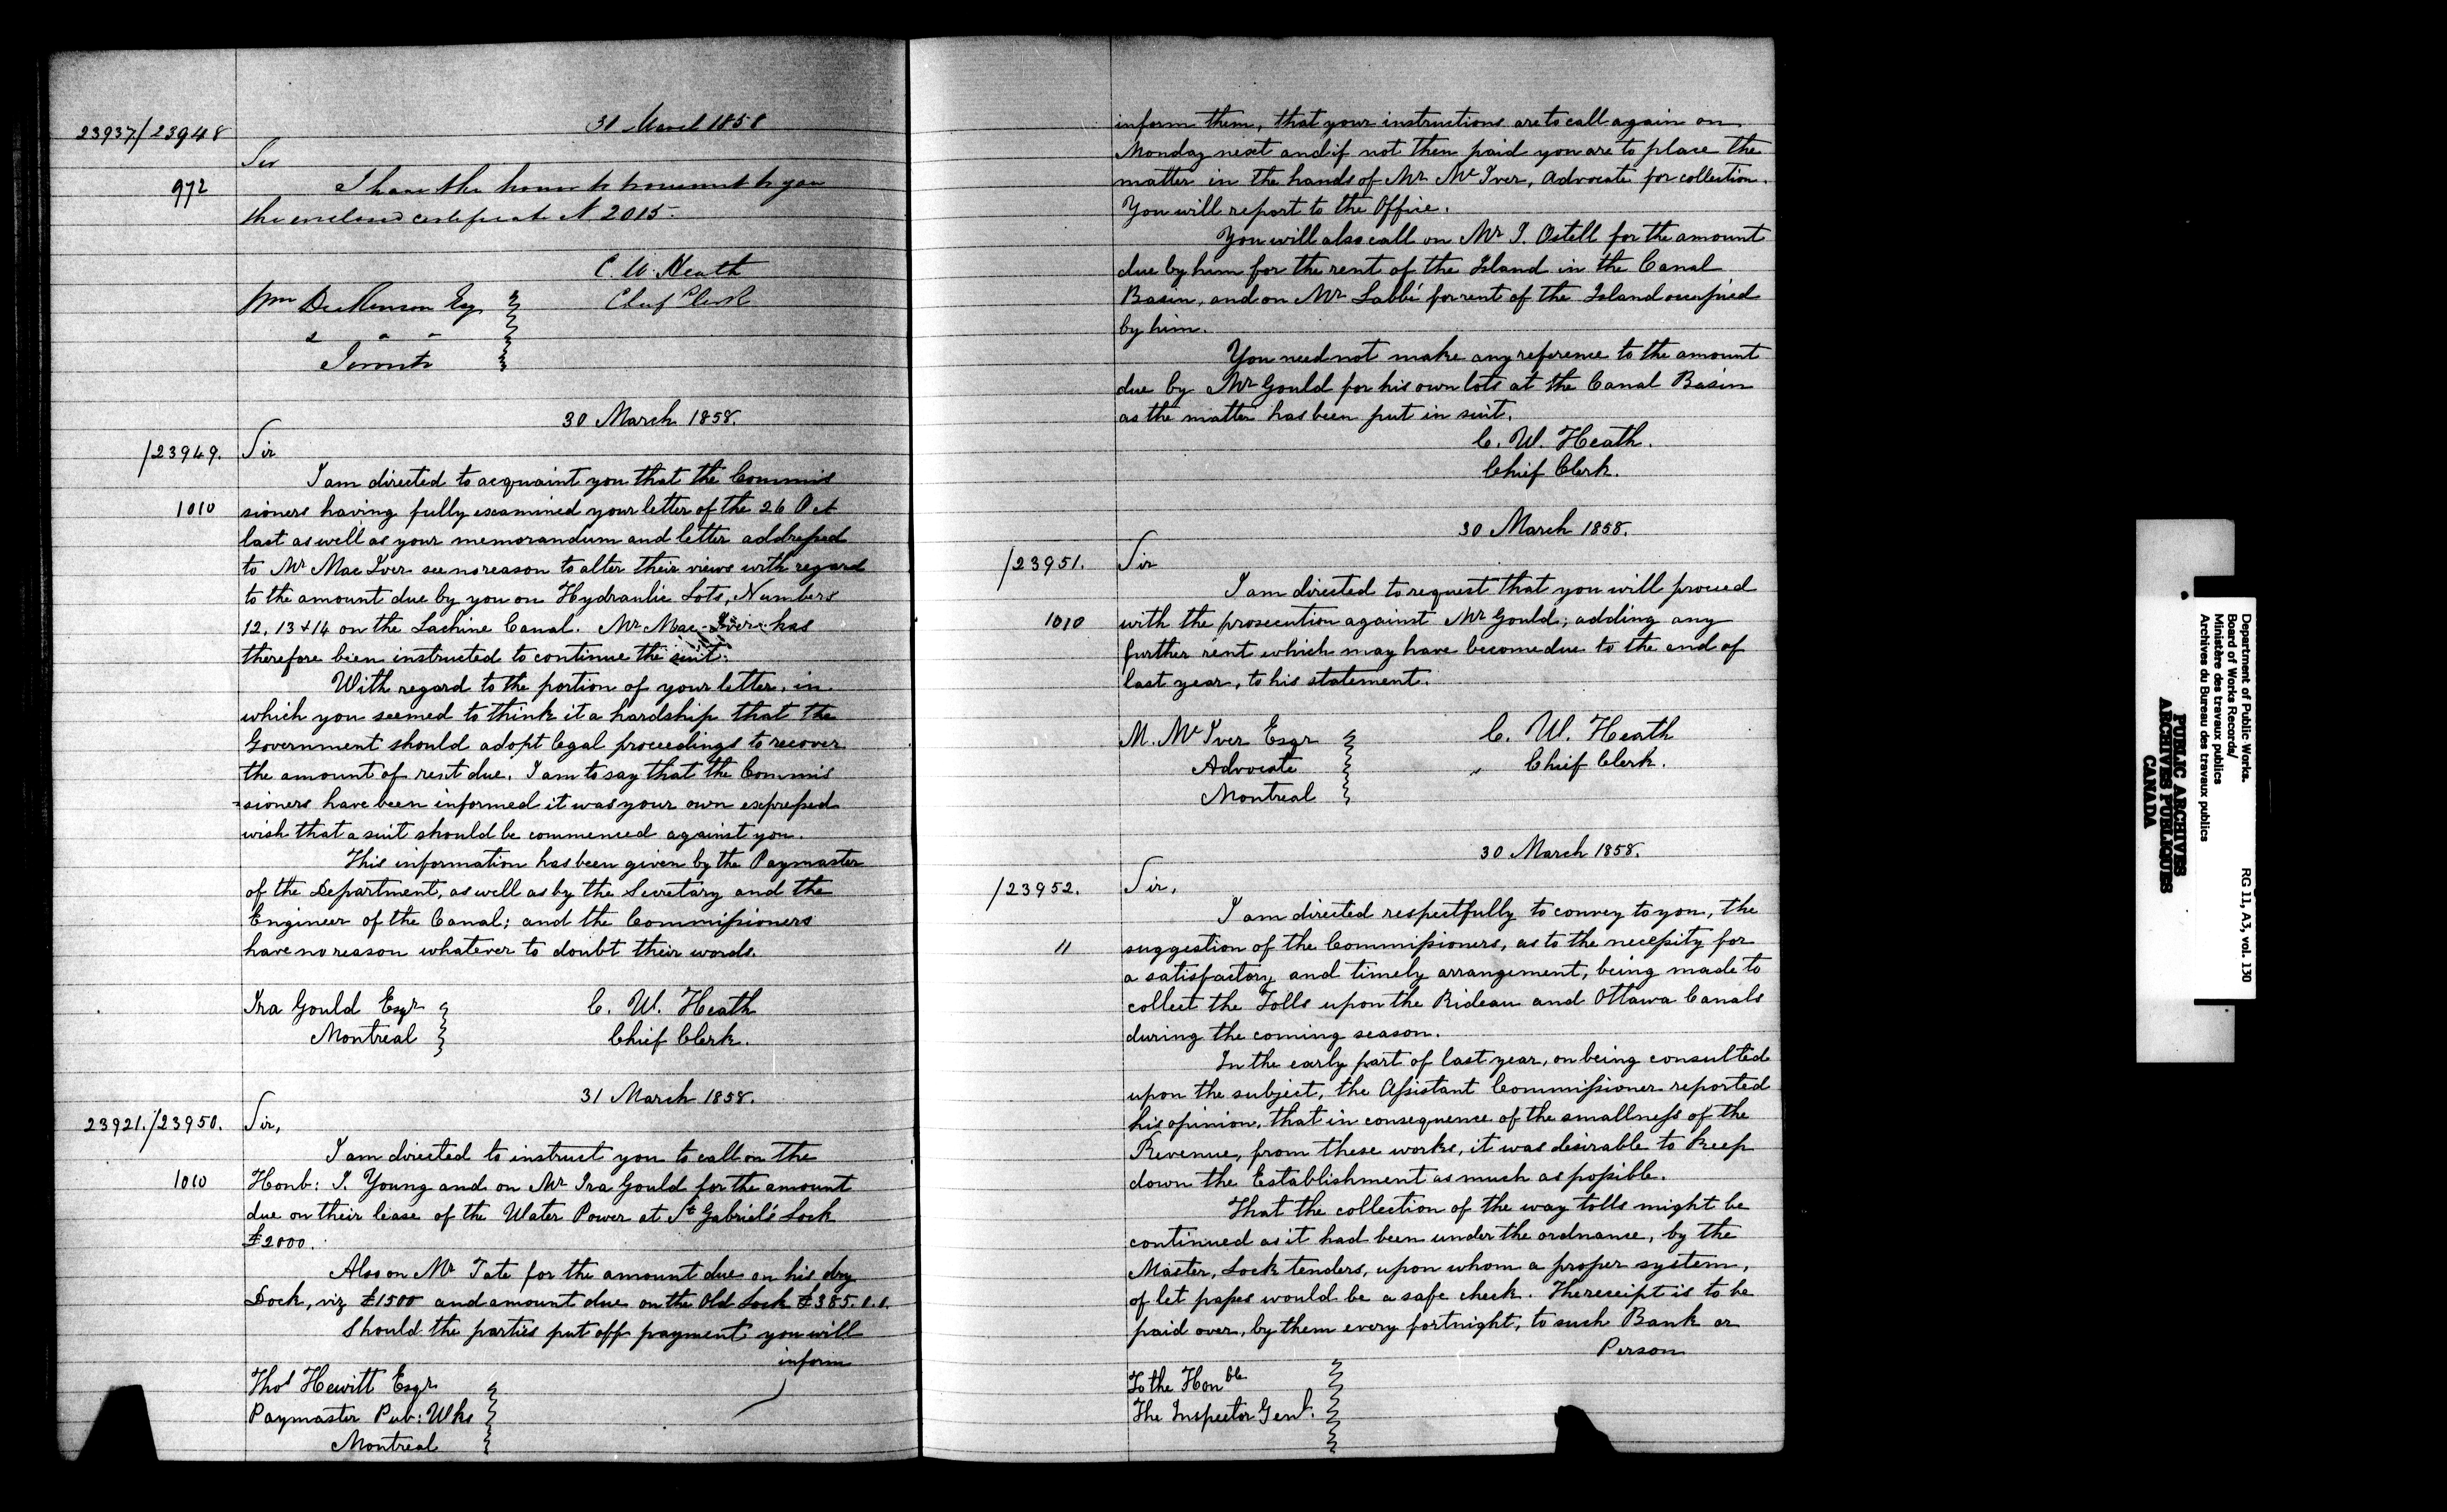 31 March 1858
23937/23948
Sir
972
I have the honor to transmit to you
the enclosed certificate N 2015.
C. W. Heath
Chief Clerk
Wm Dickenson Esq
" " "
Toronto
30 March 1858.
/23949.
Sir
I am directed to acquaint you that the Commis
1010
sioners having fully examined your letter of the 26 Oct
last as well as your memorandum and letter addressed
to Mr Mac Iver see no reason to alter their views with regard
to the amount due by you on Hydraulic Lots, Numbers
12, 13 & 14 on the Lachine Canal. Mr Mac-Iver has
therefore been instructed to continue the suit.
With regard to the portion of your letter, in
which you seemed to think it a hardship that the
Government should adopt legal proceedings to recover
the amount of rent due. I am to say that the Commis
=sioners have been informed it was your own expressed
wish that a suit should be commenced against you.
This information has been given by the Paymaster
of the Department, as well as by the Secretary and the
Engineer of the Canal; and the Commissioners
have no reason whatever to doubt their words.
Ira Gould Esqr
Montreal
C. W. Heath
Chief Clerk.
31 March 1858.
23921./23950.
Sir,
I am directed to instruct you to call on the
1010
Honb: J. Young and on Mr Ira Gould for the amount
due on their lease of the Water Power at St Gabriel's Lock
£2000.
Also on Mr Tate for the amount due on his dry
Dock, viz £1500 and amount due on the Old Lock £385.0.0.
Should the parties put off payment you will
inform
Thos Hewitt Esqr
Paymaster Pub: Wks
Montreal
inform them, that your instructions are to call again on
Monday next and if not then paid you are to place the
matter in the hands of Mr Mc Iver, Advocate for collection.
You will report to the Office.
You will also call on Mr J. Ostell for the amount
due by him for the rent of the Island in the Canal
Basin, and on Mr Labbé for rent of the Island occupied
by him.
You need not make any reference to the amount
due by Mr Gould for his own lots at the Canal Basin
as the matter has been put in suit.
C. W. Heath.
Chief Clerk.
30 March 1858.
/23951.
Sir
I am directed to request that you will proceed
1010
with the prosecution against Mr Gould; adding any
further rent which may have become due to the end of
last year, to his statement.
M. Mc Iver Esqr
Advocate
Montreal
C. W. Heath
" Chief Clerk.
30 March 1858.
/23952.
Sir,
I am directed respectfully to convey to you, the
"
suggestion of the Commissioners, as to the necessity for
a satisfactory and timely arrangement, being made to
collect the Tolls upon the Rideau and Ottawa Canals
during the coming season.
In the early part of last year, on being consulted
upon the subject, the Assistant Commissioner reported
his opinion, that in consequence of the smallness of the
Revenue, from these works, it was desirable to keep
down the Establishment as much as possible.
That the collection of the way tolls might be
continued as it had been under the ordnance, by the
Master, Lock tenders, upon whom a proper system,
of let passes would be a safe check. The receipt is to be
paid over, by them every fortnight, to such Bank or
Person
To the Honble
The Inspector Genl.
Department of Public Works.
Board of Works Records/
Ministère des travaux publics
Archives du Bureau des travaux publics
RG 11, A3, vol. 130
PUBLIC ARCHIVES
ARCHIVES PUBLIQUES
CANADA